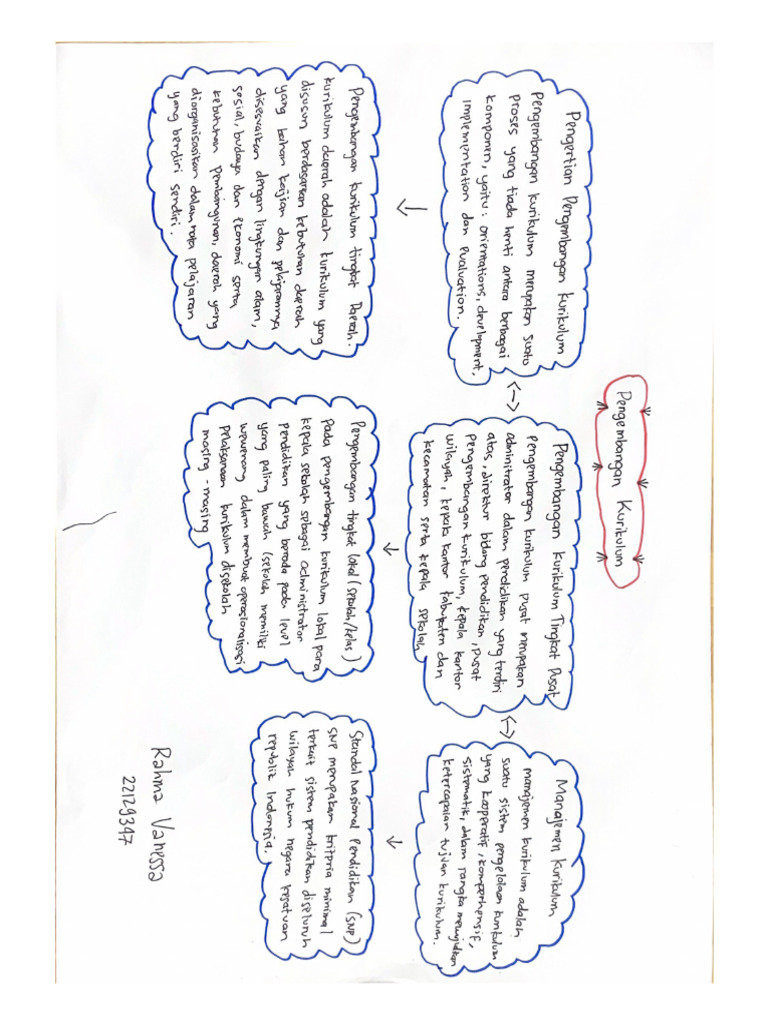 Pengembangan Kurikulum
Pengertian Pengembangan Kurikulum
Pengembangan kurikulum merupakan suatu
proses yang tiada henti antara berbagai
komponen, yaitu : orientations, development,
implementation dan evaluation.
Pengembangan Kurikulum Tingkat Pusat
pengembangan kurikulum pusat merupakan
adminitrator dalam pendidikan yang terdiri
atas, direktur bidang pendidikan, pusat
pengembangan kurikulum, kepala kantor
wilayah, kepala kantor kabupaten dan
kecamatan serta kepala sekolah
Manajemen Kurikulum
manajemen kurikulum adalah
suatu sistem pengelolaan kurikulum
yang kooperatif, komperhensif,
sistematik, dalam rangka mewujudkan
ketercapaian tujuan kurikulum.
Pengembangan kurikulum tingkat Daerah.
kurikulum daerah adalah kurikulum yang
disusun berdasarkan kebutuhan daerah
yang bahan kajian dan pelajarannya
disesuaikan dengan lingkungan alam,
sosial, budaya dan ekonomi serta
kebutuhan pembangunan, daerah yang
diorganisasikan dalam mata pelajaran
yang berdiri sendiri.
Pengembangan tingkat lokal (sekolah/kelas)
Pada pengembangan kurikulum lokal para
kepala sekolah sebagai administrator
pendidikan yang berada pada level
yang paling bawah (sekolah memiliki
wewenang dalam membuat operasionalisasi
pelaksanaan kurikulum disekolah
masing - masing
Standal nasional Pendidikan (SNP)
SNP merupakan kriteria minimal
terkait sistem pendidikan diseluruh
wilayah hukum negara kesatuan
republik Indonesia.
Rahma Vanessa
22129347